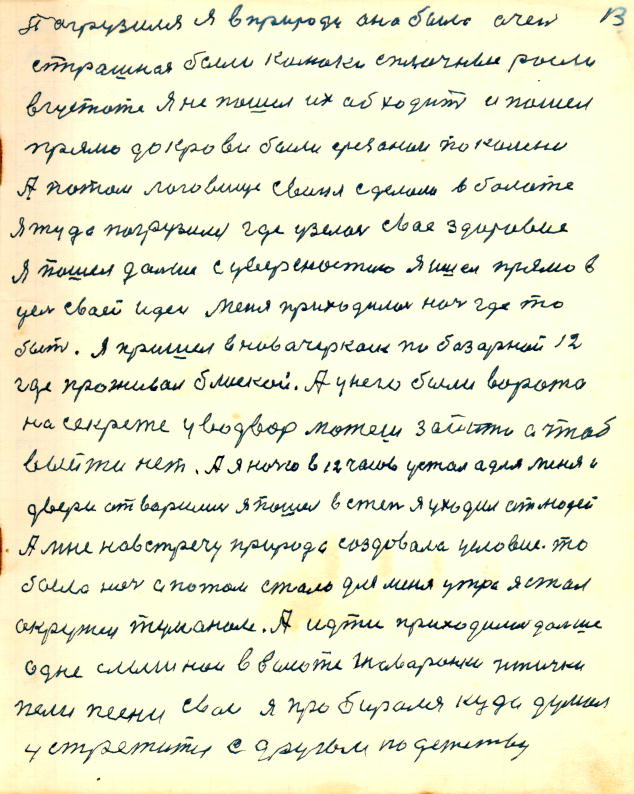 13
Пагрузился Я в природи она была очен
страшная были камаки сплочные росли
в густоте Я не пошел их обходит и пошел
прямо до крови были срезаном по колени
А потом логовище свиня сделала в болоте
Я туда погрузился где узелок свае здоровие
Я пошел дальше с уверсностию Я ишел прямо в
цел сваей идеи меня приходилос ноч где то
быт. Я пришел в новачеркаск по базарной 12
где проживал близкой. А у него были ворота
на секрете у во двор можеш зайти а чтоб
выйти нет. А я ночю в 12 часов устал а для меня и
двери отворилис я пошел в степ Я уходил от людей
А мне навстречу природа создовала условие. то
было ноч а потом стало для меня утра я стал
окружен туманом. А идти приходилос дальше
одне слышно в болоте жаваронки птички
пели песни свои я пробирался куда думал
устретится с другом по детству